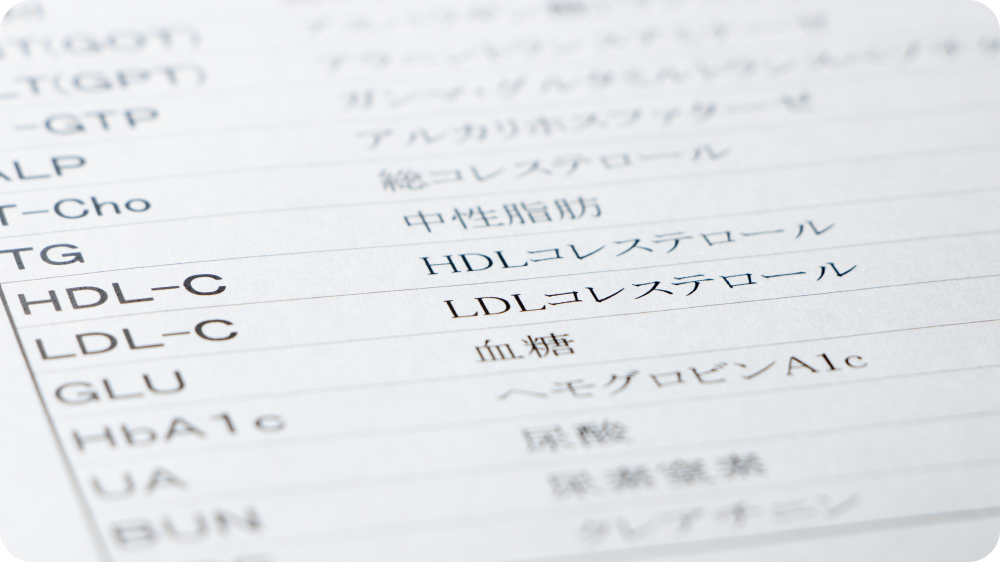 T(GOT)
LT(GPT) アラニントランスアミナーゼ
-GTP ガンマ・グルタミルトランスペプチダ
ALP アルカリホスファターゼ
T-Cho 総コレステロール
TG 中性脂肪
HDL-C HDLコレステロール
LDL-C LDLコレステロール
GLU 血糖
HbA1c ヘモグロビンA1c
UA 尿酸
BUN 尿素窒素
クレアチニン